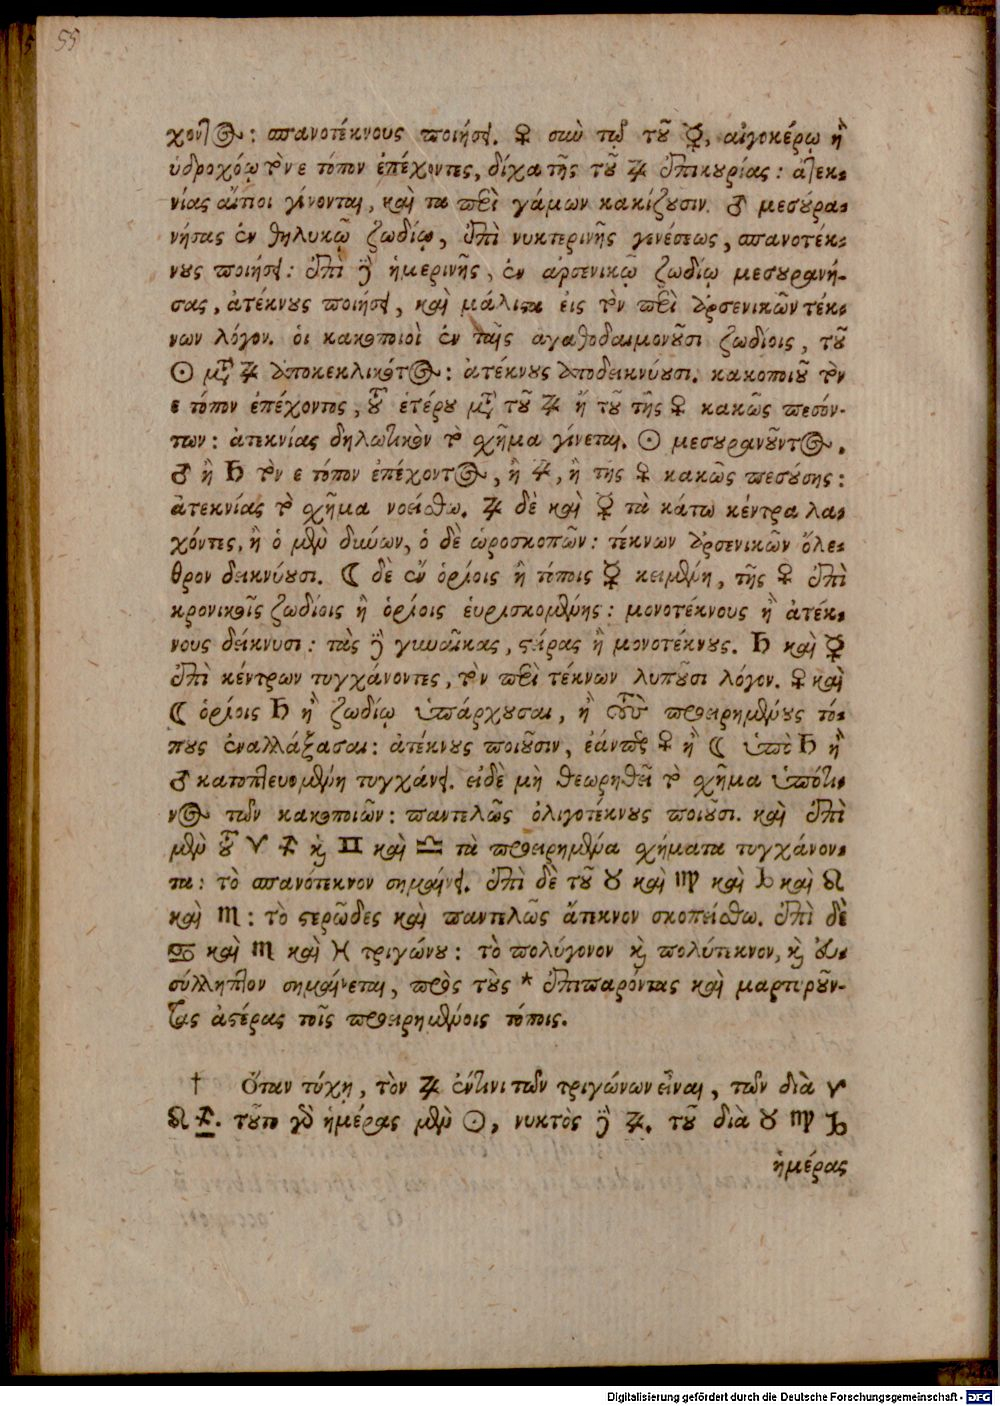 55
χοντος: σπανοτέκνους ποιήσει. ♀ σὺν τῷ τοῦ ☿, αἰγοκέρῳ ἢ
ὑδροχόῳ τὸν ε τόπον ἐπέχοντες, δίχα τῆς τοῦ ♃ ἐπικυρίας: ἀτεκ-
νίας αἴτιοι γίνονται, καὶ τὰ περὶ γάμων κακίζουσιν. ♂ μεσουρα-
νήσας ἐν θηλυκῷ ζωδίῳ, ἐπὶ νυκτερινῆς γενέσεως, σπανοτέκ-
νους ποιήσει: ἐπὶ δὲ ἡμερινῆς, ἐν ἀρσενικῷ ζωδίῳ μεσουρανή-
σας, ἀτέκνους ποιήσει, καὶ μάλιστα εἰς τὸν περὶ ἀρσενικῶν τέκ-
νων λόγον. οἱ κακοποιοὶ ἐν ταῖς αγαθοδαιμονοῦσι ζωδίοις, τοῦ
☉ μετὰ ♃ ἀποκεκλικότος: ἀτέκνους ἀποδεικνύουσι. κακοποιοῦ τὸν
ε τόπον ἐπέχοντος, τοῦ ἑτέρου μετὰ τοῦ ♃ ἢ τοῦ τῆς ♀ κακῶς πεσόν-
των: ἀτεκνίας δηλωτικὸν τὸ σχῆμα γίνεται. ☉ μεσουρανοῦντος.
♂ ἢ ♄ τὸν ε τόπον ἐπέχοντος, ἢ ♃, ἢ τῆς ♀ κακῶς πεσούσης:
ἀτεκνίας τὸ σχῆμα νοείσθω. ♃ δὲ καὶ ☿ τὰ κάτω κέντρα λα-
χόντες, ἢ ὁ μὲν δύνων, ὁ δὲ ὡροσκοπῶν: τέκνων ἀρσενικῶν ὄλε-
θρον δεικνύουσι. ☾ δὲ ἐν ὁρίοις ἢ τόποις ☿ κειμένη, τῆς ♀ ἐπὶ
κρονικοῖς ζωδίοις ἢ ὁρίοις εὑρισκομένης: μονοτέκνους ἢ ἀτέκ-
νους δείκνυσι: τὰς δὲ γυναῖκας, στείρας ἢ μονοτέκνους. ♄ καὶ ☿
ἐπὶ κέντρων τυγχάνοντες, τὸν περὶ τέκνων λυποῦσι λόγον. ♀ καὶ
☾ ὁρίοις ♄ ἢ ζωδίῳ ὑπάρχουσαι, ἢ τοὺς προειρημένους τό-
πους ἐναλλάξασαι: ἀτέκνους ποιοῦσιν, ἐάνπερ ♀ ἢ ☾ ὑπὸ ♄ ἢ
♂ κατοπτευομένη τυγχάνει. εἰδὲ μὴ θεωρηθεῖ τὸ σχῆμα ὑπότι-
νος τῶν κακοποιῶν: παντελῶς ὀλιγοτέκνους ποιοῦσι. καὶ ἐπὶ
μὲν τοῦ ♈ ♐ καὶ ♊ καὶ ♎ τὰ προειρημένα σχήματα τυγχάνον-
τα: τὸ σπανότεκνον σημαίνει. ἐπὶ δὲ τοῦ ♉ καὶ ♍ καὶ ♑ καὶ ♌
καὶ ♏: τὸ στερῶδες καὶ παντελῶς ἄτεκνον σκοπείσθω. ἐπὶ δὲ
♋ καὶ ♏ καὶ ♓ τριγώνου: τὸ πολύγονον καὶ πολύτεκνον, καὶ εὐ-
σύλληπτον σημαίνεται, πρὸς τοὺς * ἐπιπαρόντας καὶ μαρτυροῦν-
τας ἀστέρας τοῖς προειρημένοις τόποις.
† Ὅταν τύχῃ, τὸν ♃ ἐντινι τῶν τριγώνων εἶναι, τῶν διὰ ♈
♌ ♐. τοῦτο γὰρ ἡμέρας μὲν ☉, νυκτὸς δὲ ♃. τοῦ διὰ ♉ ♍ ♑
ἡμέρας
Digitalisierung gefördert durch die Deutsche Forschungsgemeinschaft - DFG